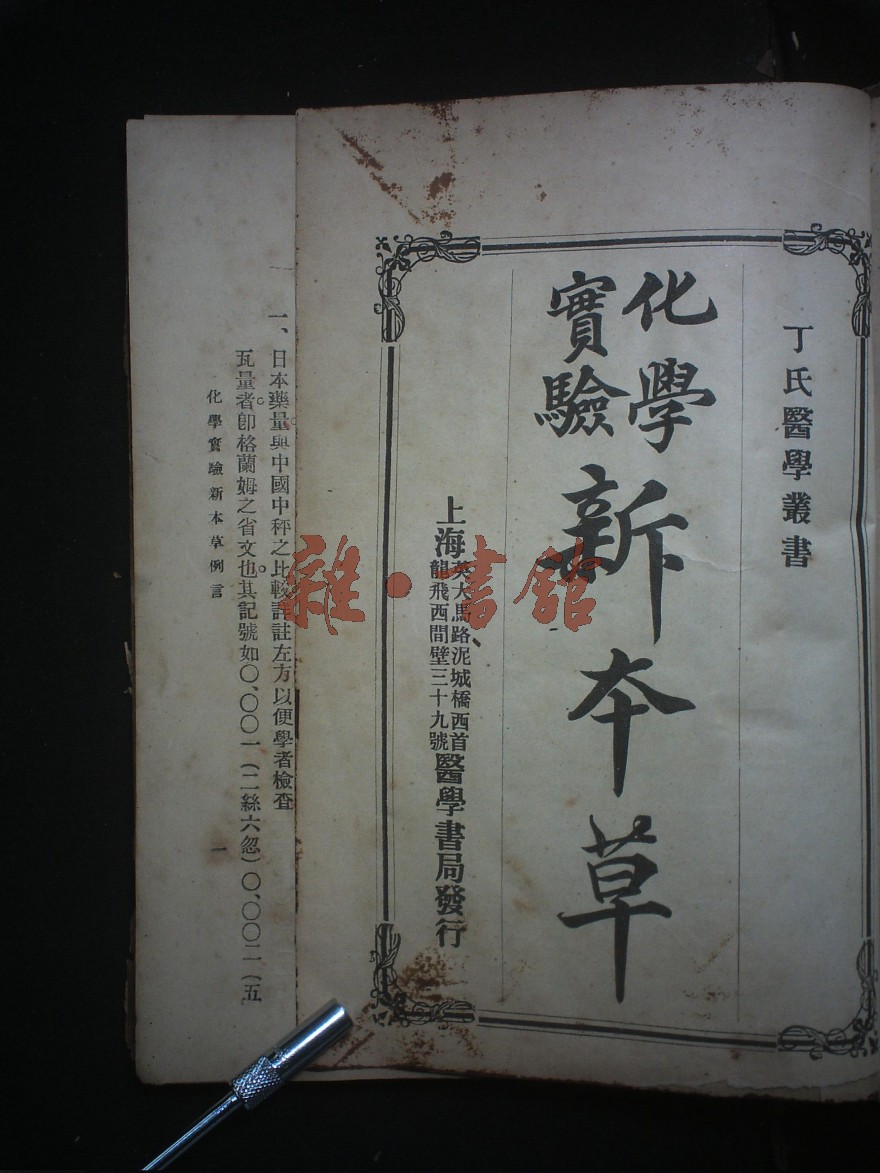 丁氏醫學叢書
化學
實驗
新本草
上海
英大馬路泥城橋西首
龍飛西間壁三十九號
醫學書局發行
一、日本藥量與中國中秤之比較詳註左方以便學者檢查
瓦量者。卽格蘭姆之省文也。其記號如〇、〇〇一(二絲六忽)〇、〇〇二(五
化學實驗新本草例言
一
雜·書館